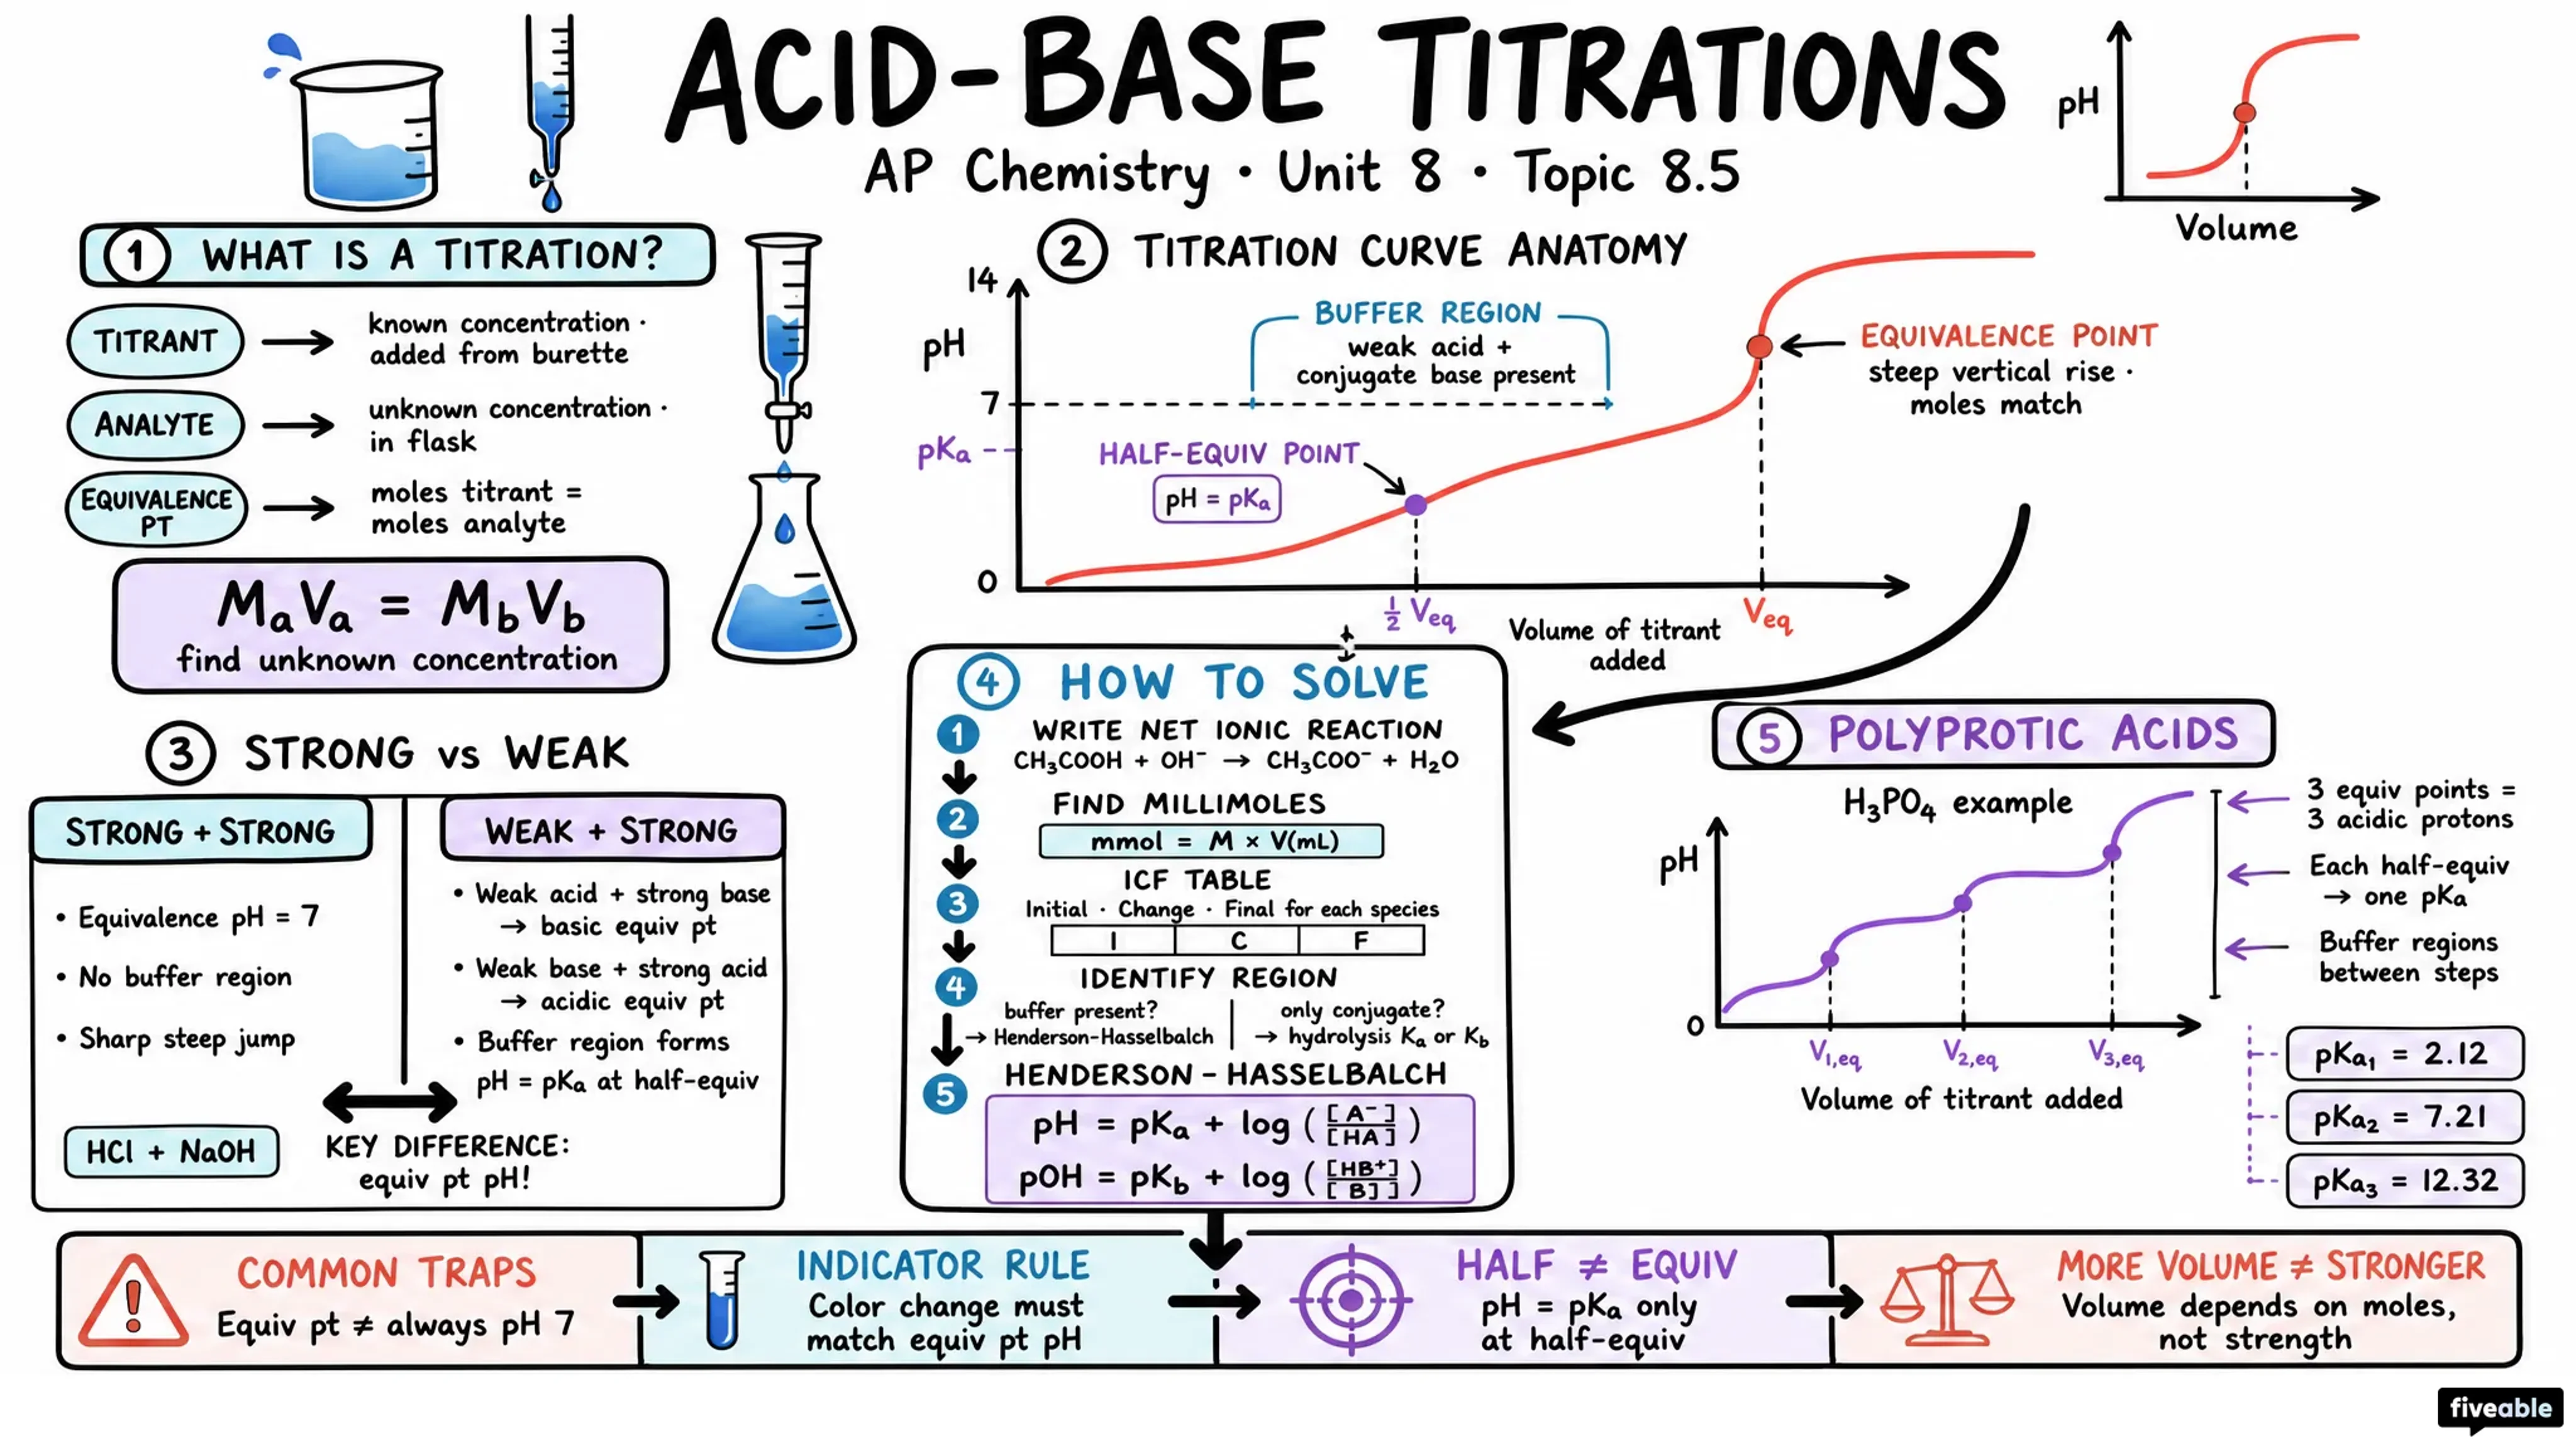 ACID-BASE TITRATIONS
AP Chemistry · Unit 8 · Topic 8.5
pH
Volume
1 WHAT IS A TITRATION?
TITRANT
known concentration ·
added from burette
ANALYTE
unknown concentration ·
in flask
EQUIVALENCE
PT
moles titrant =
moles analyte
MₐVₐ = M_bV_b
find unknown concentration
2 TITRATION CURVE ANATOMY
14
pH
7
pKₐ
0
BUFFER REGION
weak acid +
conjugate base present
HALF-EQUIV POINT
pH = pKₐ
EQUIVALENCE POINT
steep vertical rise ·
moles match
½ Veq
Veq
Volume of titrant
added
3 STRONG vs WEAK
STRONG + STRONG
• Equivalence pH = 7
• No buffer region
• Sharp steep jump
HCl + NaOH
WEAK + STRONG
• Weak acid + strong base
→ basic equiv pt
• Weak base + strong acid
→ acidic equiv pt
• Buffer region forms
pH = pKₐ at half-equiv
KEY DIFFERENCE:
equiv pt pH!
4 HOW TO SOLVE
1 WRITE NET IONIC REACTION
CH₃COOH + OH⁻ → CH₃COO⁻ + H₂O
2 FIND MILLIMOLES
mmol = M × V(mL)
3 ICF TABLE
Initial · Change · Final for each species
I C F
4 IDENTIFY REGION
buffer present?
→ Henderson-Hasselbalch
only conjugate?
→ hydrolysis Kₐ or K_b
5 HENDERSON - HASSELBALCH
pH = pKₐ + log ([A⁻]/[HA])
pOH = pK_b + log ([HB⁺]/[B]])
5 POLYPROTIC ACIDS
H₃PO₄ example
pH
0
V₁,eq
V₂,eq
V₃,eq
Volume of titrant added
3 equiv points =
3 acidic protons
Each half-equiv
→ one pKₐ
Buffer regions
between steps
pKₐ₁ = 2.12
pKₐ₂ = 7.21
pKₐ₃ = 12.32
COMMON TRAPS
Equiv pt ≠ always pH 7
INDICATOR RULE
Color change must
match equiv pt pH
HALF ≠ EQUIV
pH = pKₐ only
at half-equiv
MORE VOLUME ≠ STRONGER
Volume depends on moles,
not strength
fiveable